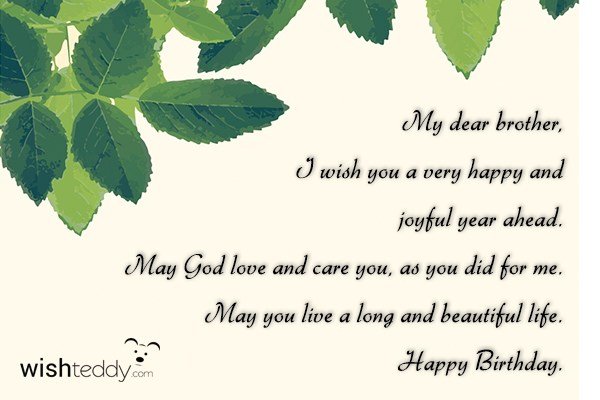 My dear brother,
I wish you a very happy and
joyful year ahead.
May God love and care you, as you did for me.
May you live a long and beautiful life.
Happy Birthday.
wishteddy.com